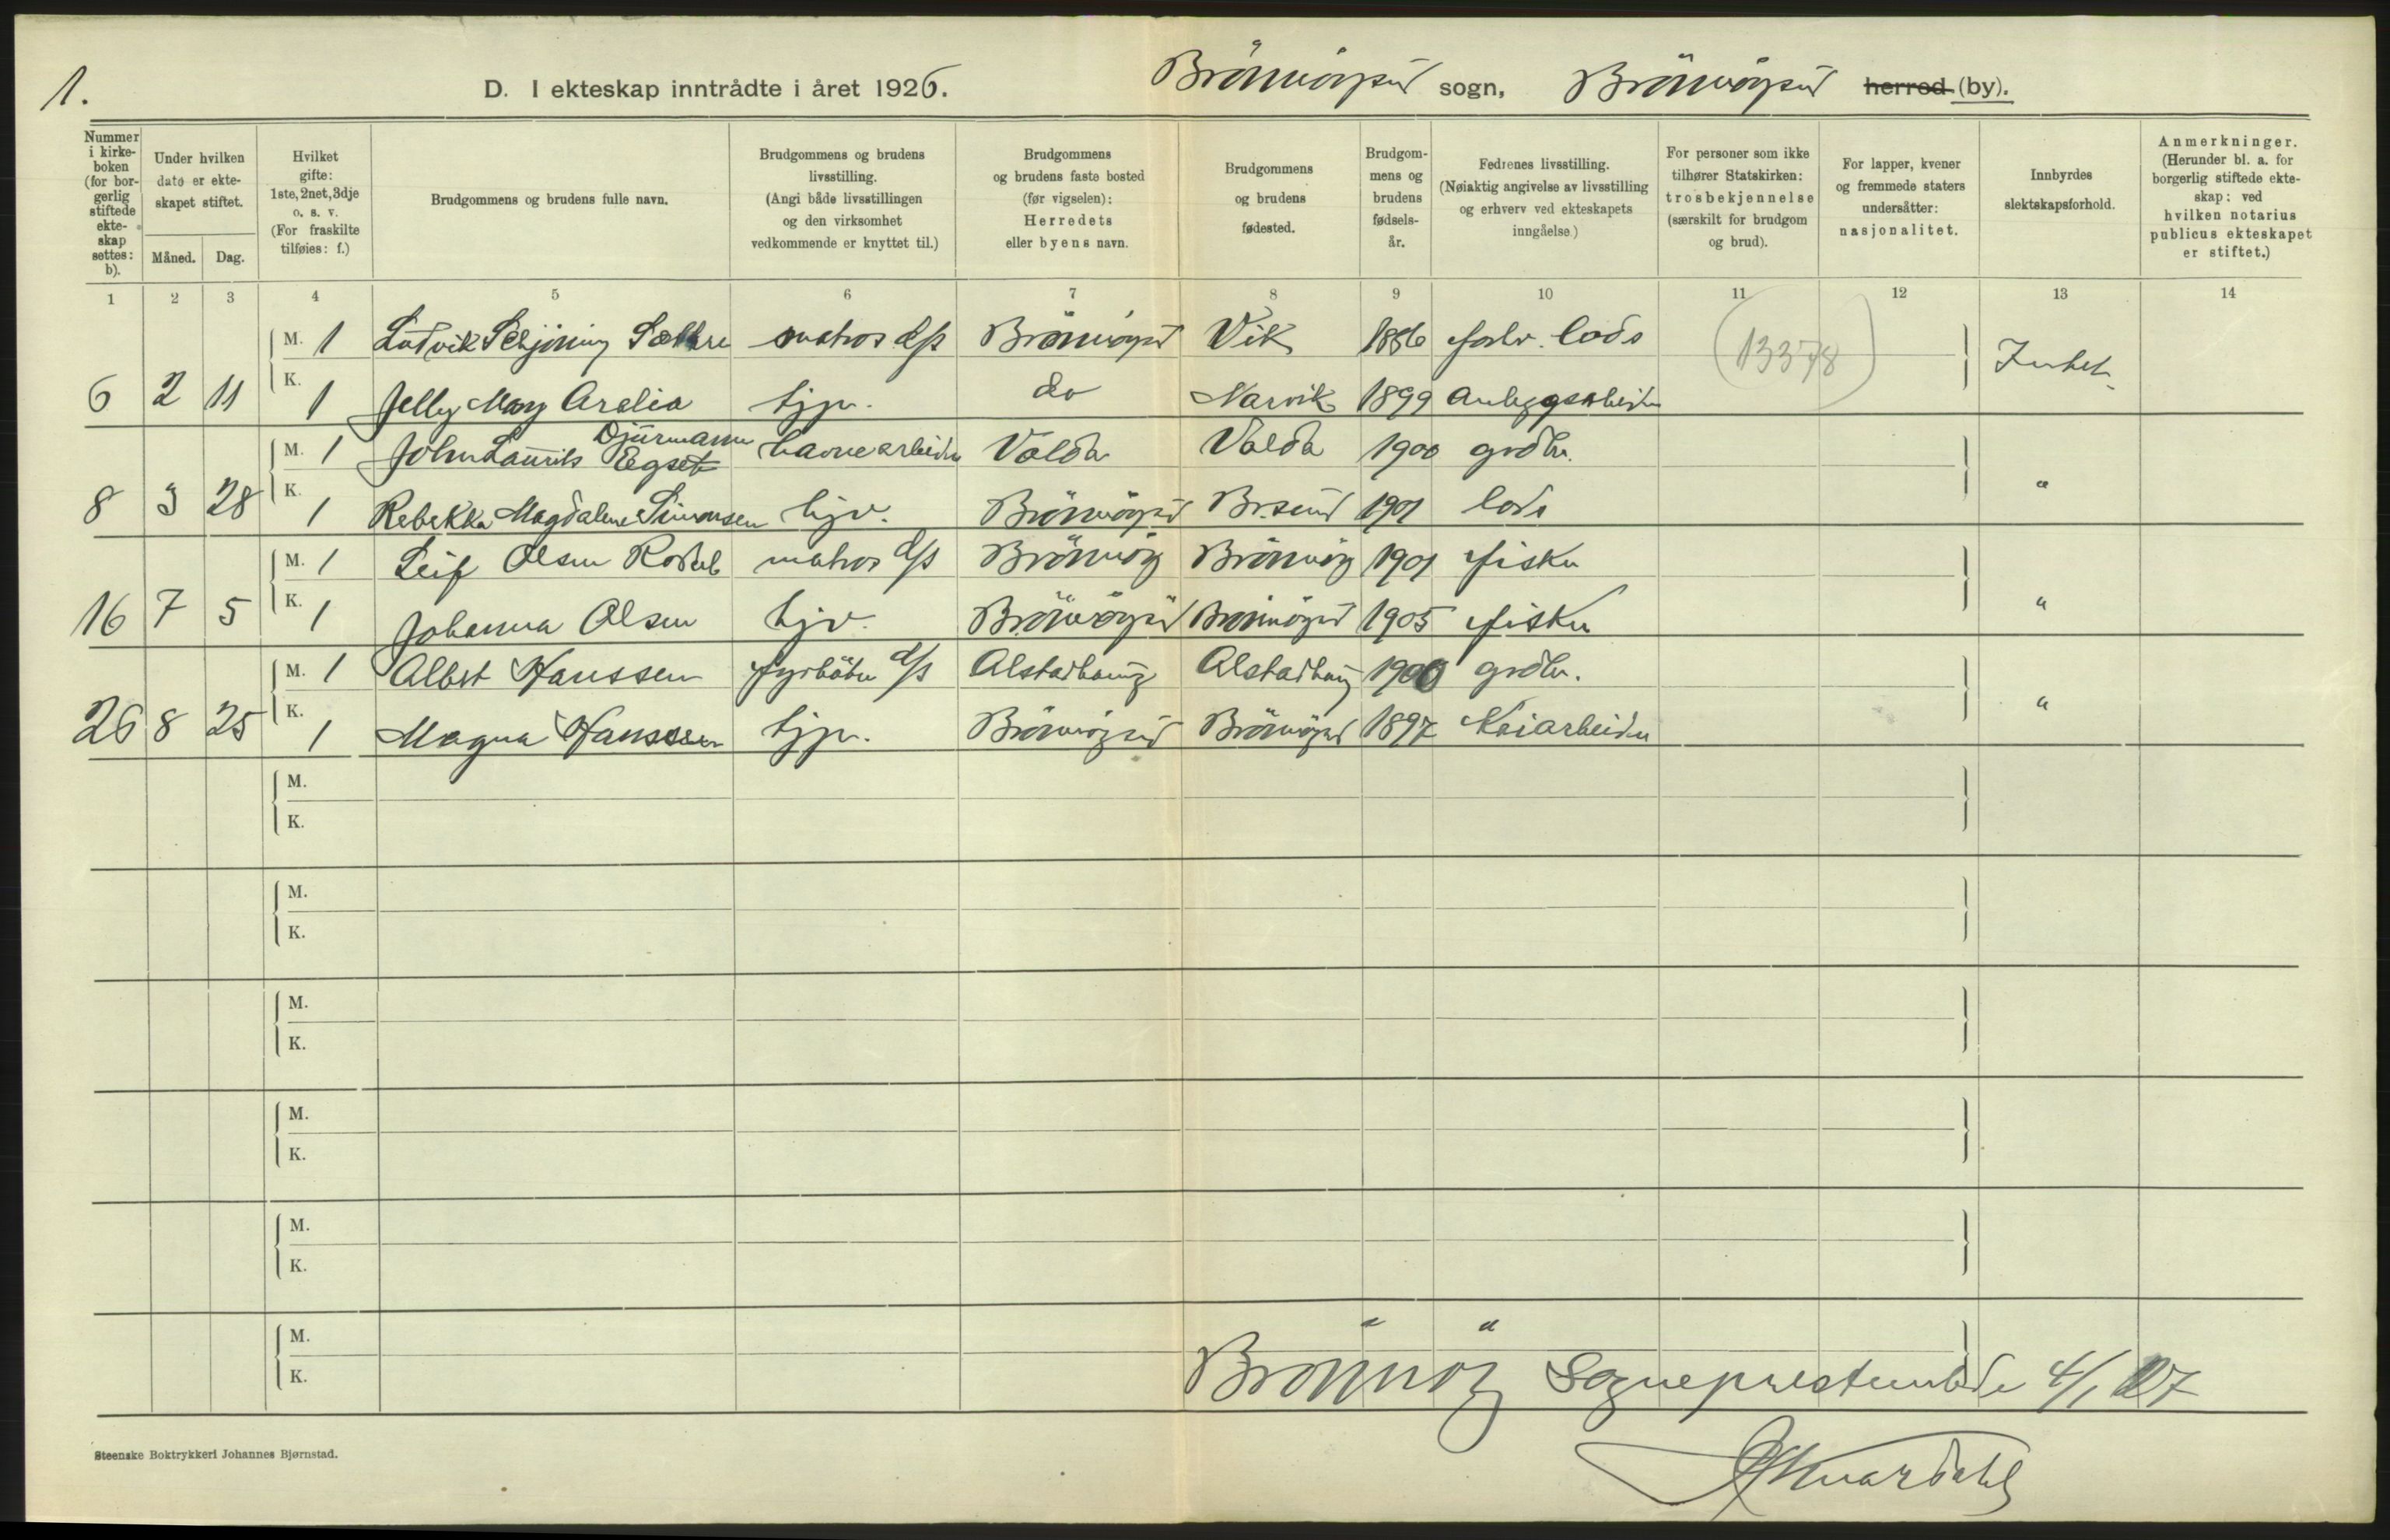 1.
D. I ekteskap inntrådte i året 1926.
Brönnöysund sogn, Brönnöysund herred (by).
Nummer i kirkeboken (for borgerlig stiftede ekteskap settes: b).
Under hvilken dato er ekteskapet stiftet.
Måned. Dag.
Hvilket gifte: 1ste, 2net, 3dje o. s. v. (For fraskilte tilføies: f.)
Brudgommens og brudens fulle navn.
Brudgommens og brudens livsstilling. (Angi både livsstillingen og den virksomhet vedkommende er knyttet til.)
Brudgommens og brudens faste bosted (før vigselen): Herredets eller byens navn.
Brudgommens og brudens fødested.
Brudgommens og brudens fødselsår.
Fedrenes livsstilling. (Nøiaktig angivelse av livsstilling og erhverv ved ekteskapets inngåelse.)
For personer som ikke tilhører Statskirken: trosbekjennelse (særskilt for brudgom og brud).
For lapper, kvener og fremmede staters undersåtter: nasjonalitet.
Innbyrdes slektskapsforhold.
Anmerkninger. (Herunder bl. a. for borgerlig stiftede ekteskap: ved hvilken notarius publicus ekteskapet er stiftet.)
1 2 3 4 5 6 7 8 9 10 11 12 13 14
M. 1 Ludvik Schjöning matros d/s Brönnöysd Vik 1886 forhv. lods (13378)
6 2 11 K. 1 Jelly Mary Aralia hjv. do Narvik 1899 Anleggsarbeider
M. 1 John Laurits Djurmann Egset havnearbeider Volda Volda 1900 grdbr.
8 3 28 K. 1 Rebekka Magdalene Simonsen hjv. Brönnöysd Br.sund 1901 lods "
M. 1 Leif Olsen matros d/s Brönnöy Brönnöy 1901 fisker
16 7 5 K. 1 Johanna Olsen hjv. Brönnöysd Brönnöysd 1905 fisker "
M. 1 Albert Hanssen fyrböter d/s Alstadhaug Alstadhaug 1900 grdbr.
26 8 25 K. 1 Magna Hanssen hjv. Brönnöysund Brönnöysd 1897 Kaiarbeider "
M.
K.
M.
K.
M.
K.
M.
K.
M.
K.
M.
K.
Brönnöy Sogneprestembede 4/1 27
Steenske Boktrykkeri Johannes Bjørnstad.